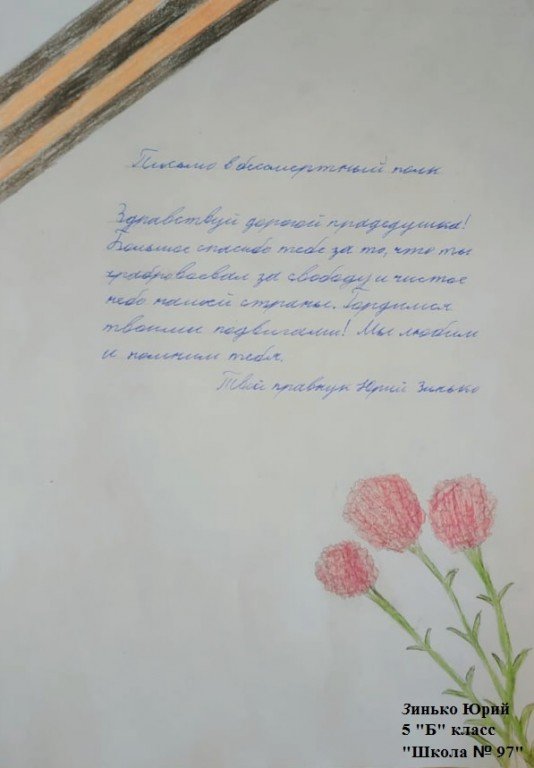 Письмо в бессмертный полк
Здравствуй дорогой прадедушка!
Большое спасибо тебе за то, что ты
храбро воевал за свободу и чистое
небо нашей страны. Гордимся
твоими подвигами! Мы любим
и помним тебя.
Твой правнук Юрий Зинько
Зинько Юрий
5 "Б" класс
"Школа № 97"